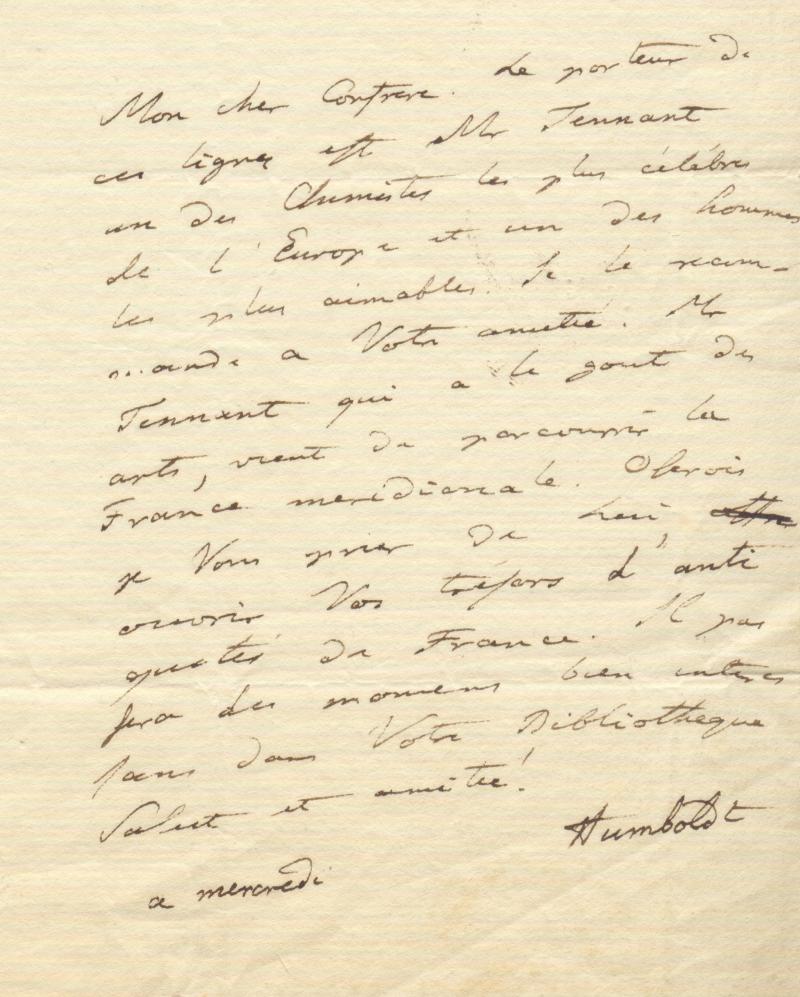 Mon cher Confrere. Le porteur de
ces lignes est Mr Tennant
un des Chimistes les plus célébres
de l'Europe et un des hommes
les plus aimables. Je le recom-
mande a Votre amitié. Mr
Tennant qui a le gout des
arts, vient de parcourrir la
France meridionale. Oserois
je Vous prier de lui
ouvrir Vos trésors d'anti
quités de France. Il pas
sera des momens bien interes
sans dans Votre Bibliotheque
Salut et amitié!
Humboldt
a mercredi